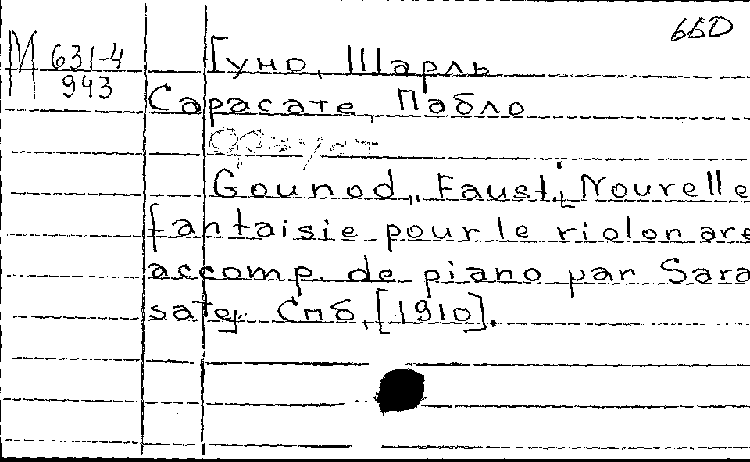 ббо
М 631-4
943
Гуно, Шарль
Сарасате, Пабло
Gounod, Faust; Nouvelle
fantaisie pour le violon avec
accomp. de piano par Sara
sate, Спб, [1910].